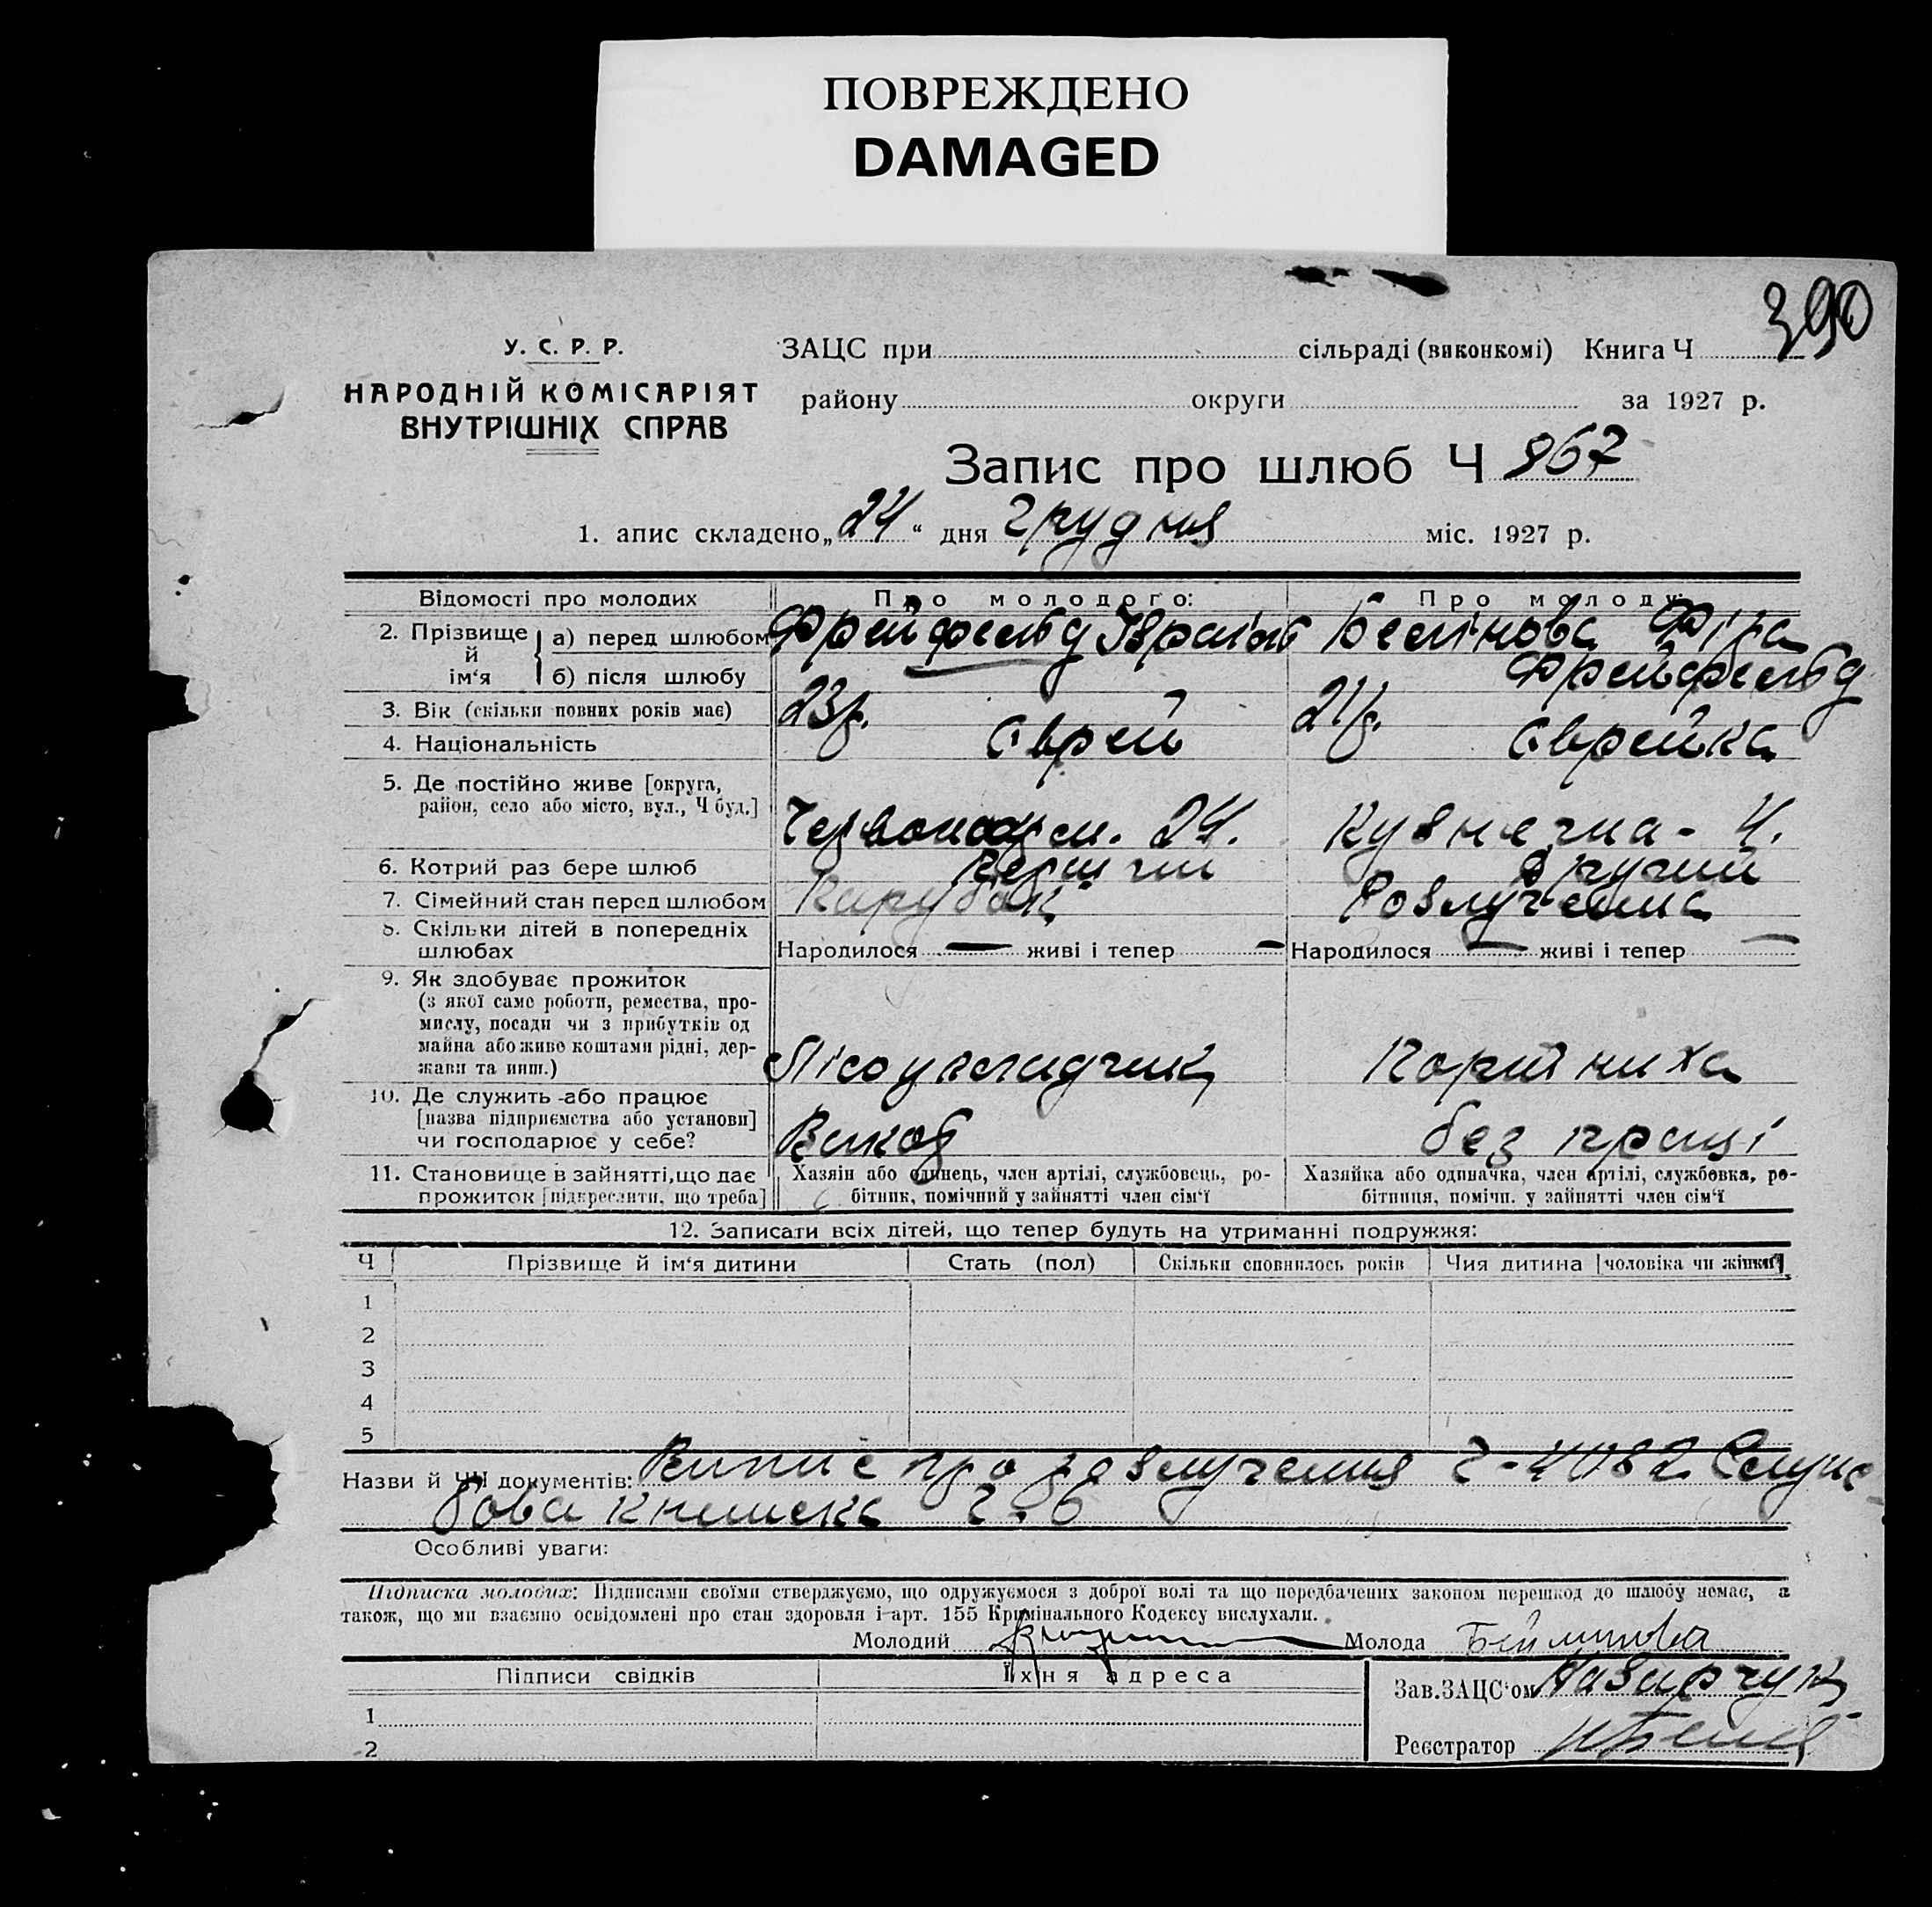 ПОВРЕЖДЕНО
DAMAGED
390
У. С. Р. Р.
НАРОДНІЙ КОМІСАРІЯТ
ВНУТРІШНІХ СПРАВ
ЗАЦС при сільраді (виконкомі) Книга Ч
району округи за 1927 р.
Запис про шлюб Ч 967
1. апис складено „24“ дня грудня міс. 1927 р.
Відомості про молодих Про молодого: Про молоду:
2. Прізвище й ім‘я
а) перед шлюбом Фрейфельд Ізраїль Бейлінова Фіра
б) після шлюбу Фрейфельд
3. Вік (скільки повних років має) 23 р. 21 р.
4. Національність Єврей Єврейка
5. Де постійно живе [округа,
район, село або місто, вул., Ч буд.] 24. Кузнечна - 4.
6. Котрий раз бере шлюб Перший Другий
7. Сімейний стан перед шлюбом Парубок Розлучена
8. Скільки дітей в попередніх
шлюбах
Народилося — живі і тепер — Народилося — живі і тепер —
9. Як здобуває прожиток
(з якої саме роботи, ремества, про-
мислу, посади чи з прибутків од
майна або живе коштами рідні, дер-
жави та инш.) Лісоукладчик
10. Де служить або працює
[назва підприємства або установи]
чи господарює у себе? без праці
11. Становище в зайнятті, що дає
прожиток [підкреслити, що треба]
Хазяін або одинець, член артілі, службовець, ро-
бітник, помічний у зайнятті член сім‘ї
Хазяйка або одиначка, член артілі, службовка, ро-
бітниця, помічн. у зайнятті член сім‘ї
12. Записати всіх дітей, що тепер будуть на утриманні подружжя:
Ч Прізвище й ім‘я дитини Стать (пол) Скільки сповнилось років Чия дитина [чоловіка чи жінки]
1
2
3
4
5
Назви й ЧЧ документів: Випис про розлучення Ч-4082 Служ
бова книжка Ч-6
Особливі уваги:
Підписка молодих: Підписами своїми стверджуємо, що одружуємося з доброї волі та що передбачених законом перешкод до шлюбу немає, а
також, що ми взаємно освідомлені про стан здоровля і арт. 155 Кримінального Кодексу вислухали.
Молодий Молода Бейлинова
Підписи свідків Їхня адреса
1
2
Зав. ЗАЦС‘ом Назарчук
Реєстратор